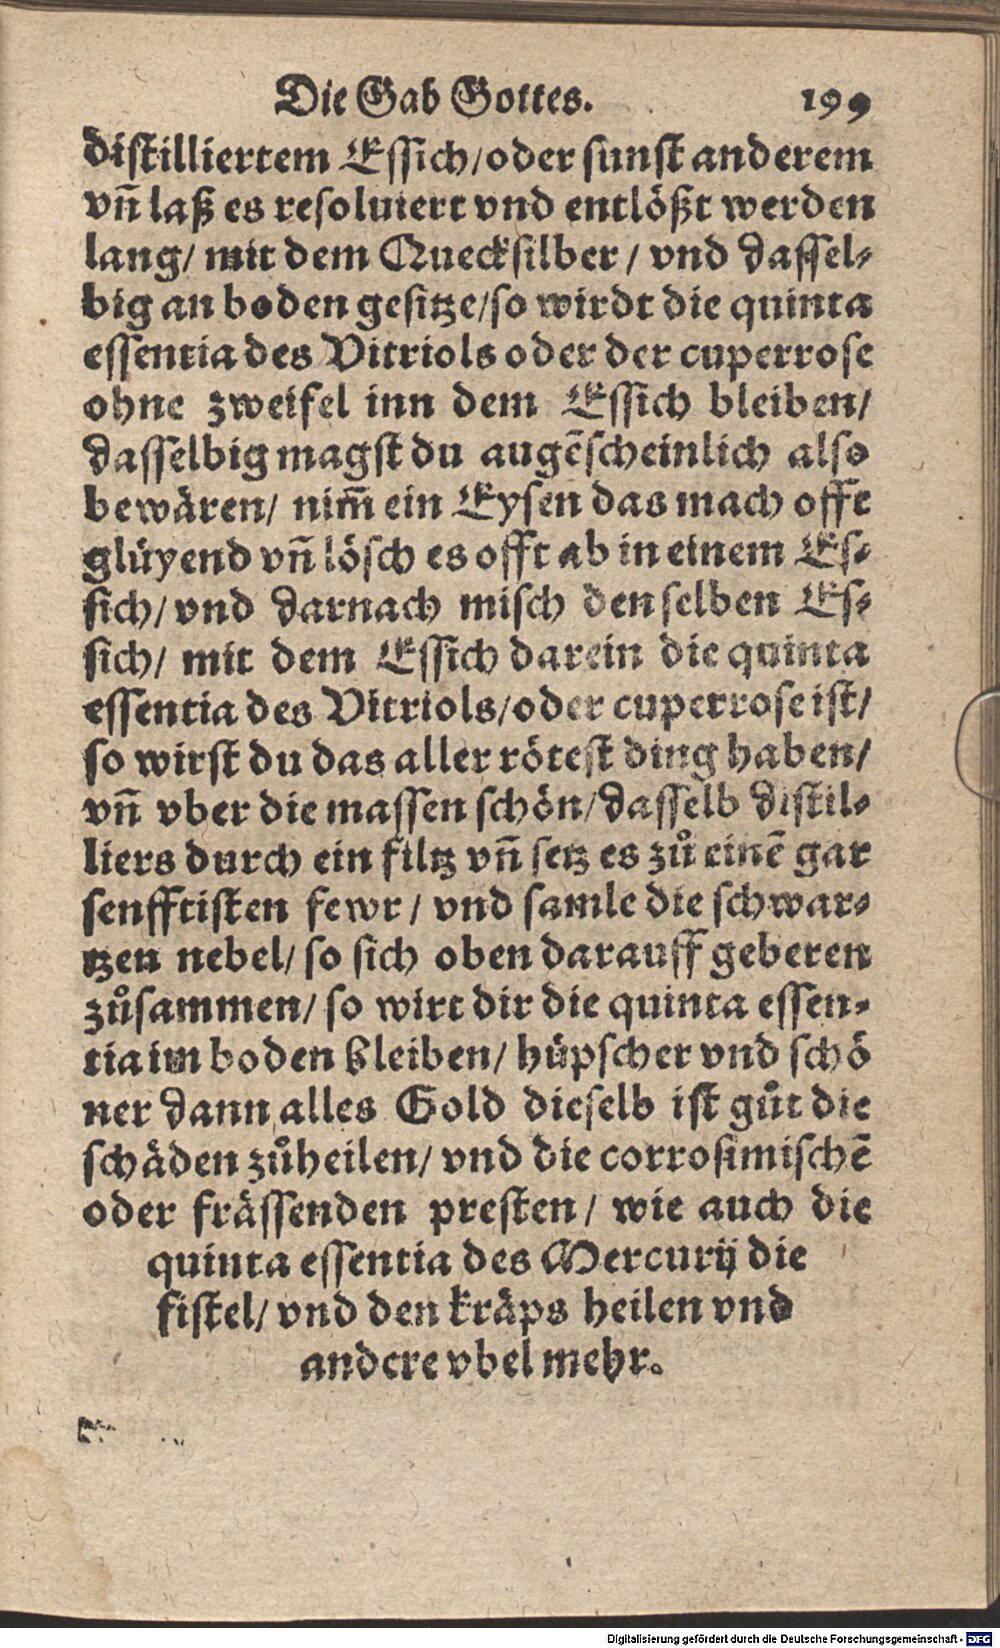 Die Gab Gottes. 199
distilliertem Essich/oder sunst anderem
vñ laß es resoluiert vnd entlößt werden
lang/ mit dem Quecksilber/ vnd dassel-
big an boden gesitze/so wirdt die quinta
essentia des Vitriols oder der cuperrose
ohne zweifel inn dem Essich bleiben/
dasselbig magst du augẽscheinlich also
bewären/ nim̃ ein Eysen das mach offt
glüyend vñ lösch es offt ab in einem Es-
sich/ vnd darnach misch denselben Es-
sich/ mit dem Essich darein die quinta
essentia des Vitriols/oder cuperrose ist/
so wirst du das aller rötest ding haben/
vñ vber die massen schön/dasselb distil-
liers durch ein filtz vñ setz es zů einẽ gar
senfftisten fewr/ vnd samle die schwar-
tzen nebel/ so sich oben darauff geberen
zůsammen/ so wirt dir die quinta essen-
tia im boden bleiben/ hüpscher vnd schö
ner dann alles Gold dieselb ist gůt die
schäden zůheilen/ vnd die corrosimischẽ
oder frässenden presten/ wie auch die
quinta essentia des Mercurij die
fistel/ vnd den kräps heilen vnd
andere vbel mehr.
Digitalisierung gefördert durch die Deutsche Forschungsgemeinschaft - DFG